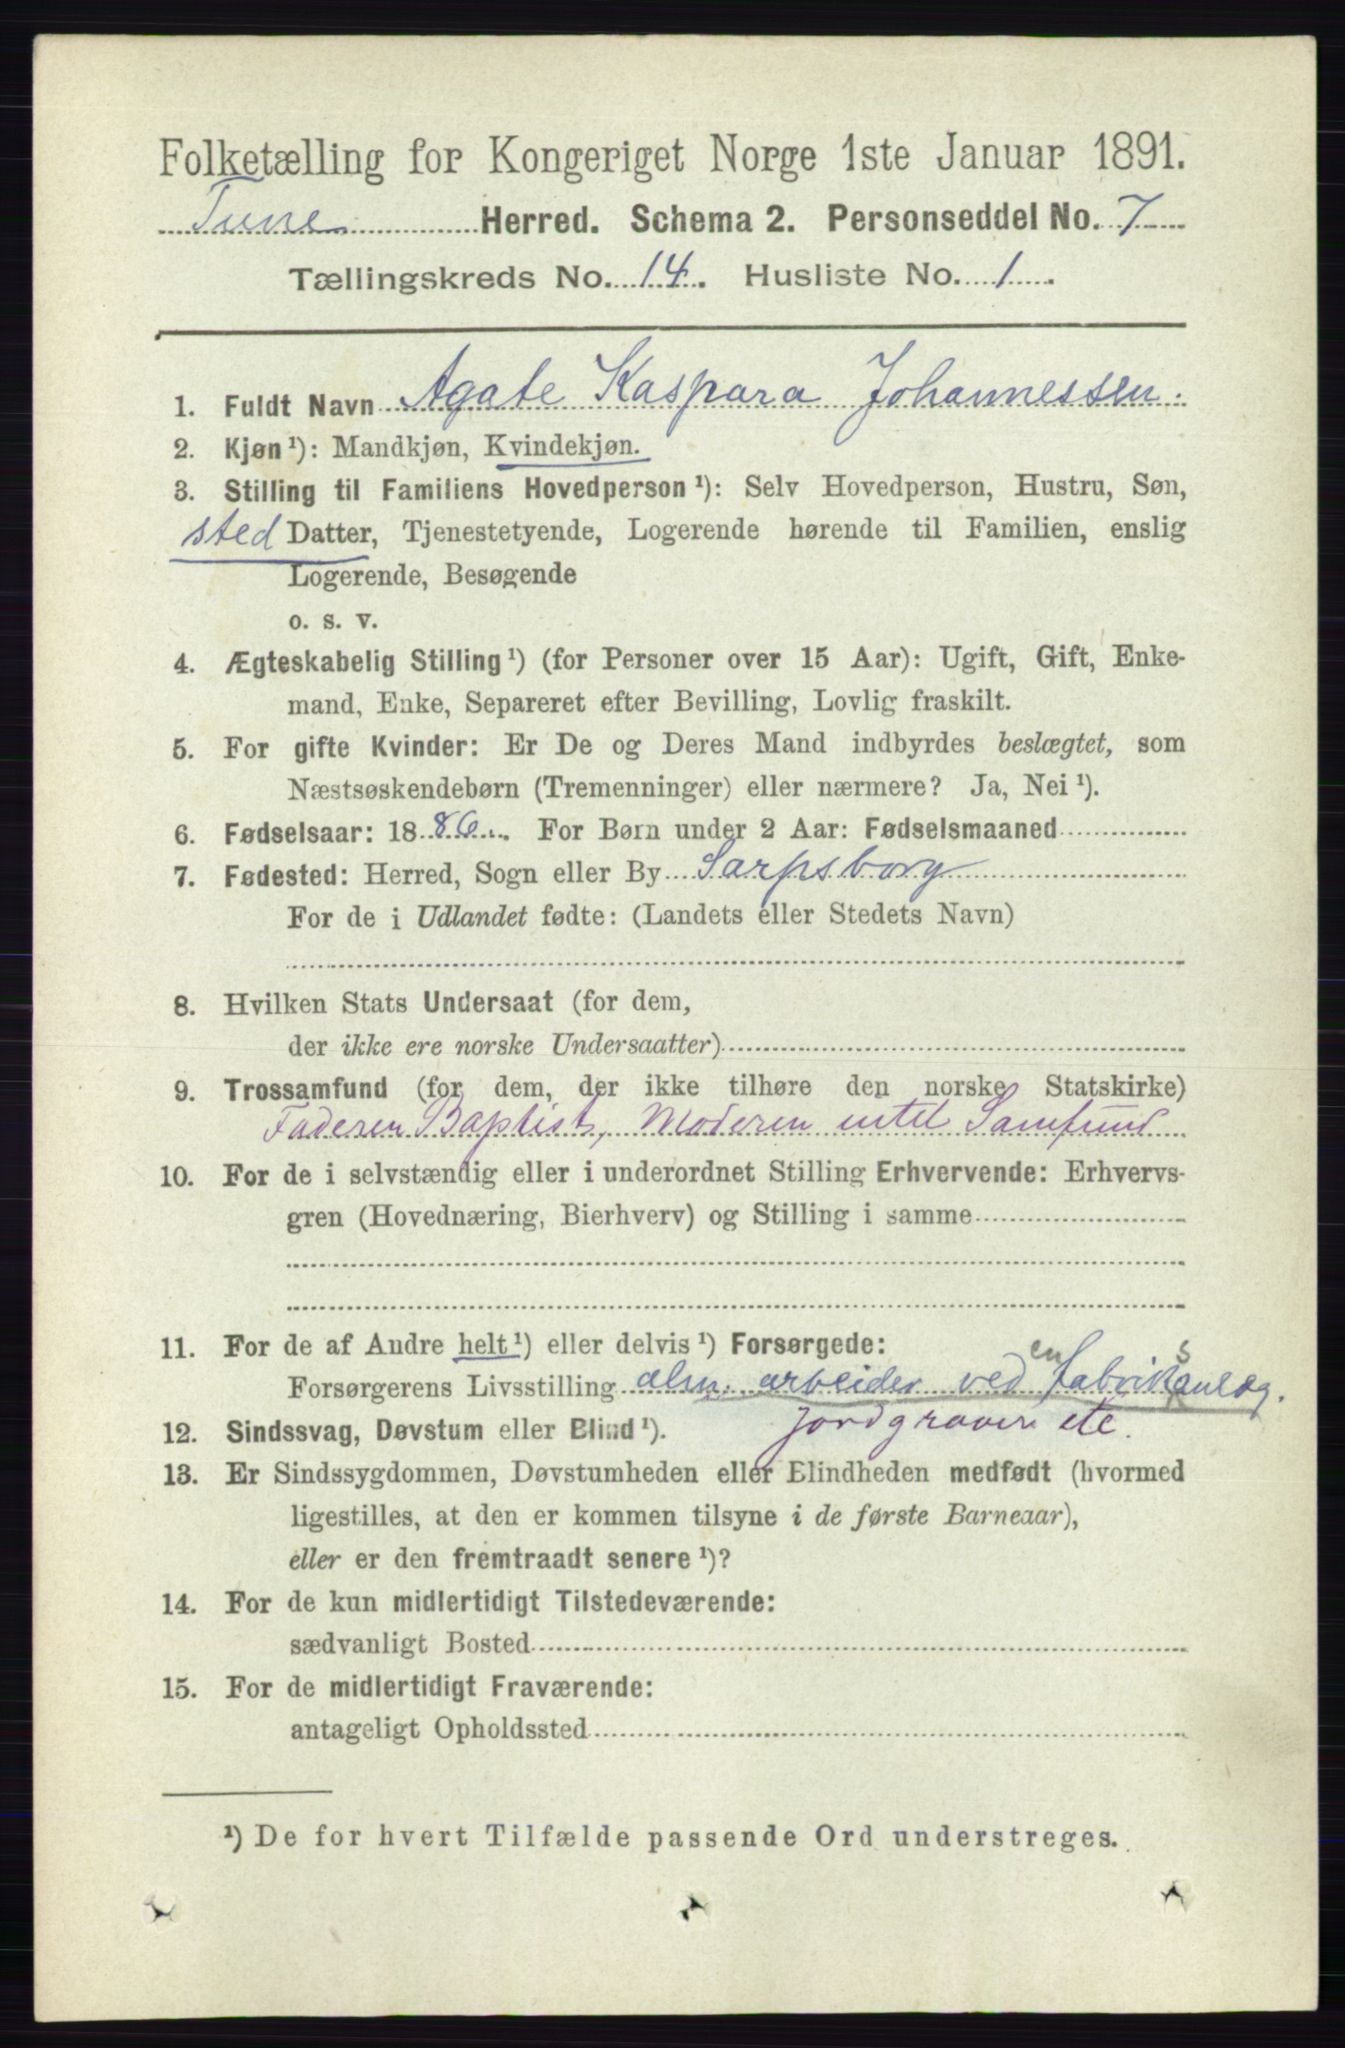 Folketælling for Kongeriget Norge 1ste Januar 1891.
Tune Herred. Schema 2. Personseddel No. 7
Tællingskreds No. 14. Husliste No. 1
1. Fuldt Navn Agate Kaspara Johannessen.
2. Kjøn¹): Mandkjøn, Kvindekjøn.
3. Stilling til Familiens Hovedperson¹): Selv Hovedperson, Hustru, Søn,
sted Datter, Tjenestetyende, Logerende hørende til Familien, enslig
Logerende, Besøgende
o. s. v.
4. Ægteskabelig Stilling¹) (for Personer over 15 Aar): Ugift, Gift, Enke-
mand, Enke, Separeret efter Bevilling, Lovlig fraskilt.
5. For gifte Kvinder: Er De og Deres Mand indbyrdes beslægtet, som
Næstsøskendebørn (Tremenninger) eller nærmere? Ja, Nei¹).
6. Fødselsaar: 1886. For Børn under 2 Aar: Fødselsmaaned
7. Fødested: Herred, Sogn eller By Sarpsborg
For de i Udlandet fødte: (Landets eller Stedets Navn)
8. Hvilken Stats Undersaat (for dem,
der ikke ere norske Undersaatter)
9. Trossamfund (for dem, der ikke tilhøre den norske Statskirke)
Faderen Baptist, Moderen intet Samfund
10. For de i selvstændig eller i underordnet Stilling Erhvervende: Erhvervs-
gren (Hovednæring, Bierhverv) og Stilling i samme
11. For de af Andre helt¹) eller delvis¹) Forsørgede:
Forsørgerens Livsstilling alm. arbeider ved en Fabriksanlæg.
Jordgraver etc.
12. Sindssvag, Døvstum eller Blind¹).
13. Er Sindssygdommen, Døvstumheden eller Blindheden medfødt (hvormed
ligestilles, at den er kommen tilsyne i de første Barneaar),
eller er den fremtraadt senere¹)?
14. For de kun midlertidigt Tilstedeværende:
sædvanligt Bosted
15. For de midlertidigt Fraværende:
antageligt Opholdssted
¹) De for hvert Tilfælde passende Ord understreges.